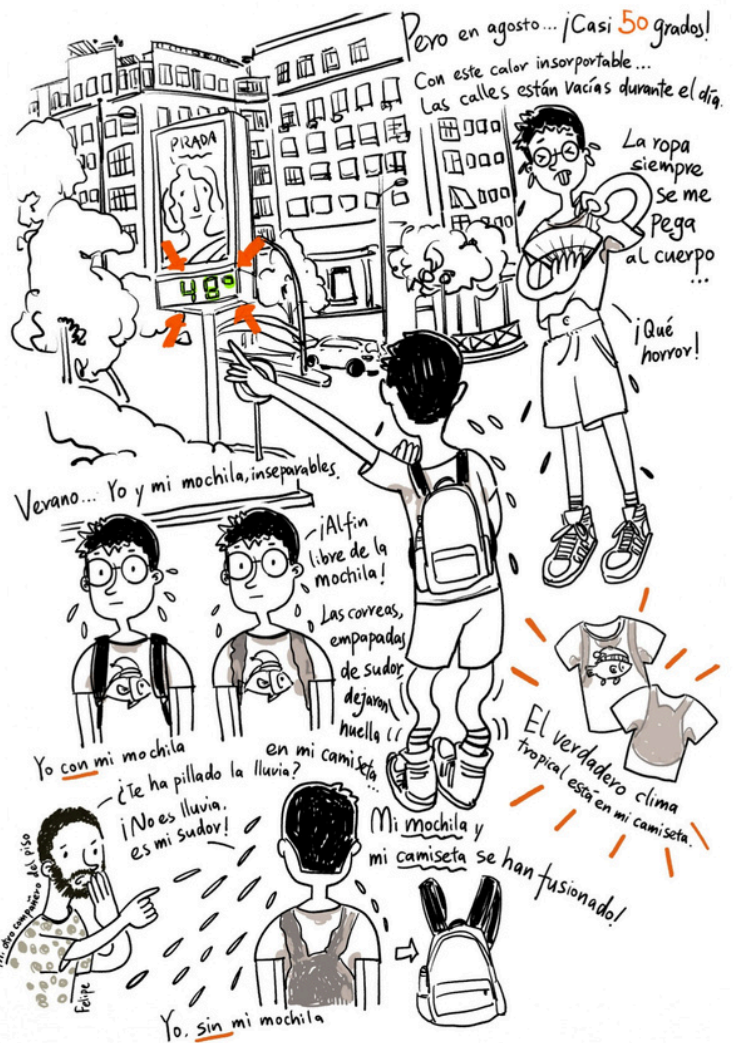 Pero en agosto... ¡Casi 50 grados!
Con este calor insorportable...
Las calles están vacías durante el día.
La ropa
siempre
se me
pega
al cuerpo
...
¡Qué
horror!
PRADA
48°
Verano... Yo y mi mochila, inseparables.
¡Alfin
libre de la
mochila!
Las correas,
empapadas
de sudor,
dejaron
huella
en mi camiseta...
Yo con mi mochila
El verdadero clima
tropical está en mi camiseta.
¿Te ha pillado la lluvia?
¡No es lluvia,
es mi sudor!
Mi mochila y
mi camiseta se han fusionado!
otro compañero del piso
Felipe
Yo, sin mi mochila